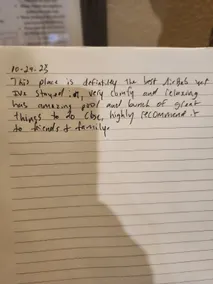 10-24-23
This place is definitely the best AirBnb yet
Ive stayed in, very comfy and relaxing
has amazing pool and bunch of great
things to do close, highly recommend it
to friends & family.